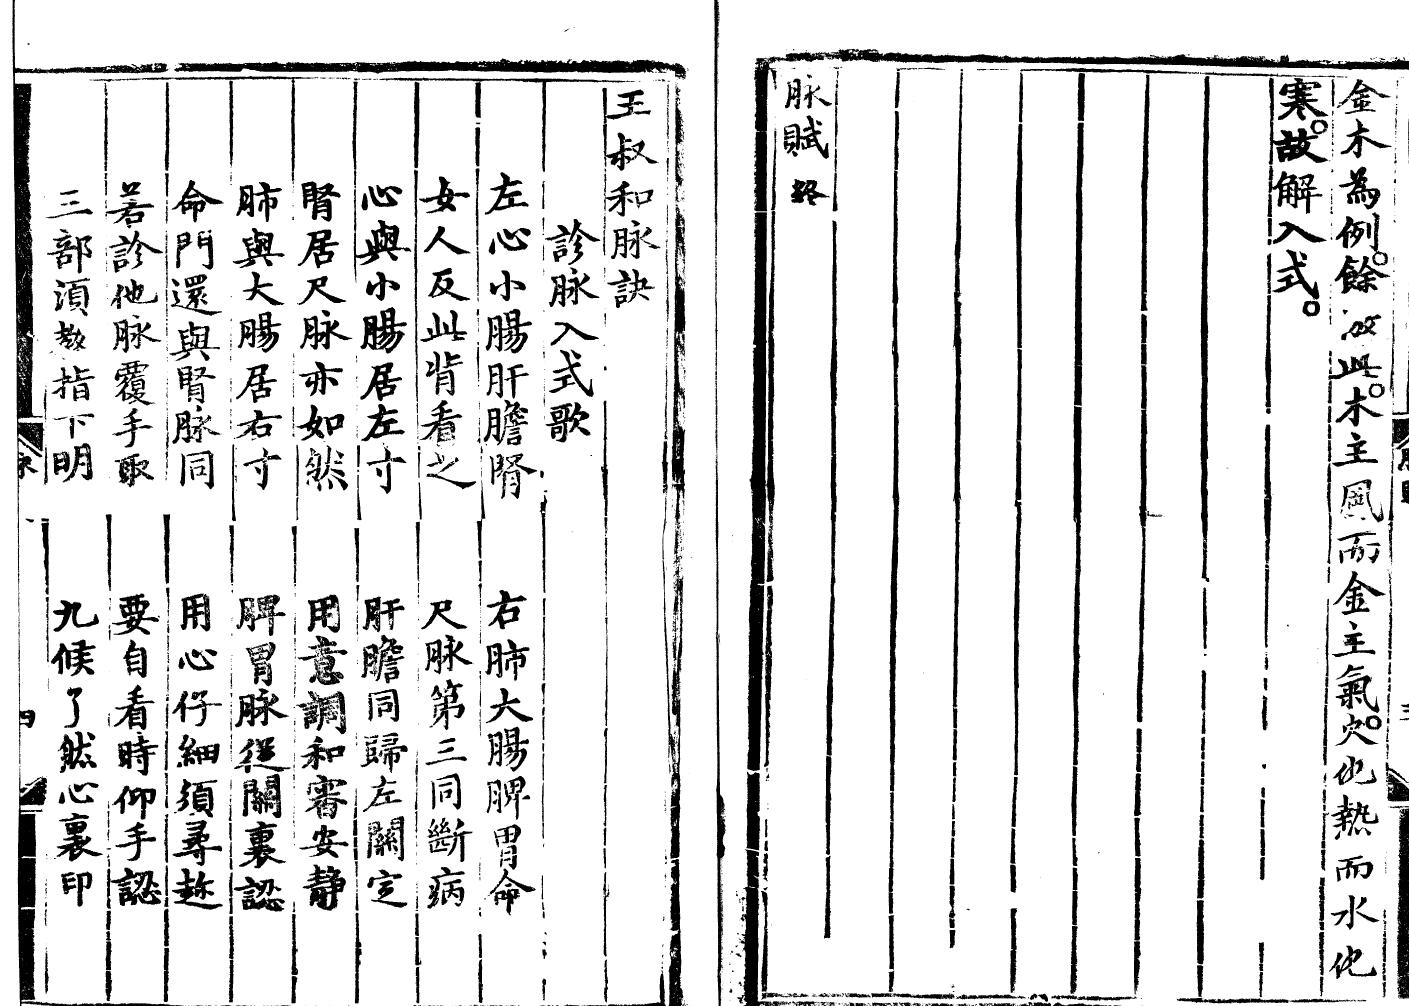 金木為例。餘倣此。木主風而金主氣。穴也熱而水也
寒。故解入式。
脉賦 終
王叔和脉訣
診脉入式歌
左心小腸肝膽腎 右肺大腸脾胃命
女人反此背看之 尺脉第三同斷病
心與小腸居左寸 肝膽同歸左關定
腎居尺脉亦如然 用意調和審安靜
肺與大腸居右寸 脾胃脉從關裏認
命門還與腎脉同 用心仔細須尋趂
若診他脉覆手取 要自看時仰手認
三部須教指下明 九候了然心裏印
四